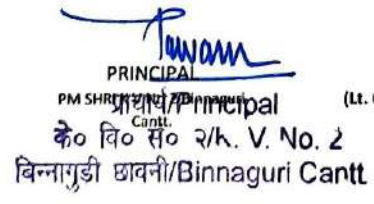 Pawam
PRINCIPAL
PM SHRI 2/Binnaguri (Lt.
प्राचार्य/Principal
Cantt.
के० वि० सं० २/K. V. No. 2
बिन्नागुड़ी छावनी/Binnaguri Cantt